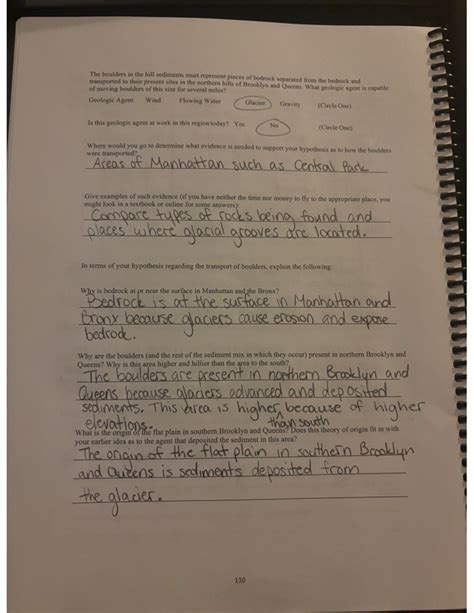 The boulders in the hill sediments must represent pieces of bedrock separated from the bedrock and
transported to their present sites in the northern hills of Brooklyn and Queens. What geologic agent is capable
of moving boulders of this size for several miles?
Geologic Agent Wind Flowing Water Glacier Gravity (Circle One)
Is this geologic agent at work in this region today? Yes No (Circle One)
Where would you go to determine what evidence is needed to support your hypothesis as to how the boulders
were transported?
Areas of Manhattan such as Central Park
Give examples of such evidence (if you have neither the time nor money to fly to the appropriate place, you
might look in a textbook or online for some answers):
Compare types of rocks being found and
places where glacial grooves are located.
In terms of your hypothesis regarding the transport of boulders, explain the following:
Why is bedrock at or near the surface in Manhattan and the Bronx?
Bedrock is at the surface in Manhattan and
Bronx because glaciers cause erosion and expose
bedrock.
Why are the boulders (and the rest of the sediment mix in which they occur) present in northern Brooklyn and
Queens? Why is this area higher and hillier than the area to the south?
The boulders are present in northern Brooklyn and
Queens because glaciers advanced and deposited
sediments. This area is higher because of higher
elevations. than south
What is the origin of the flat plain in southern Brooklyn and Queens? Does this theory of origin fit in with
your earlier idea as to the agent that deposited the sediment in this area?
The origin of the flat plain in southern Brooklyn
and Queens is sediments deposited from
the glacier.
130